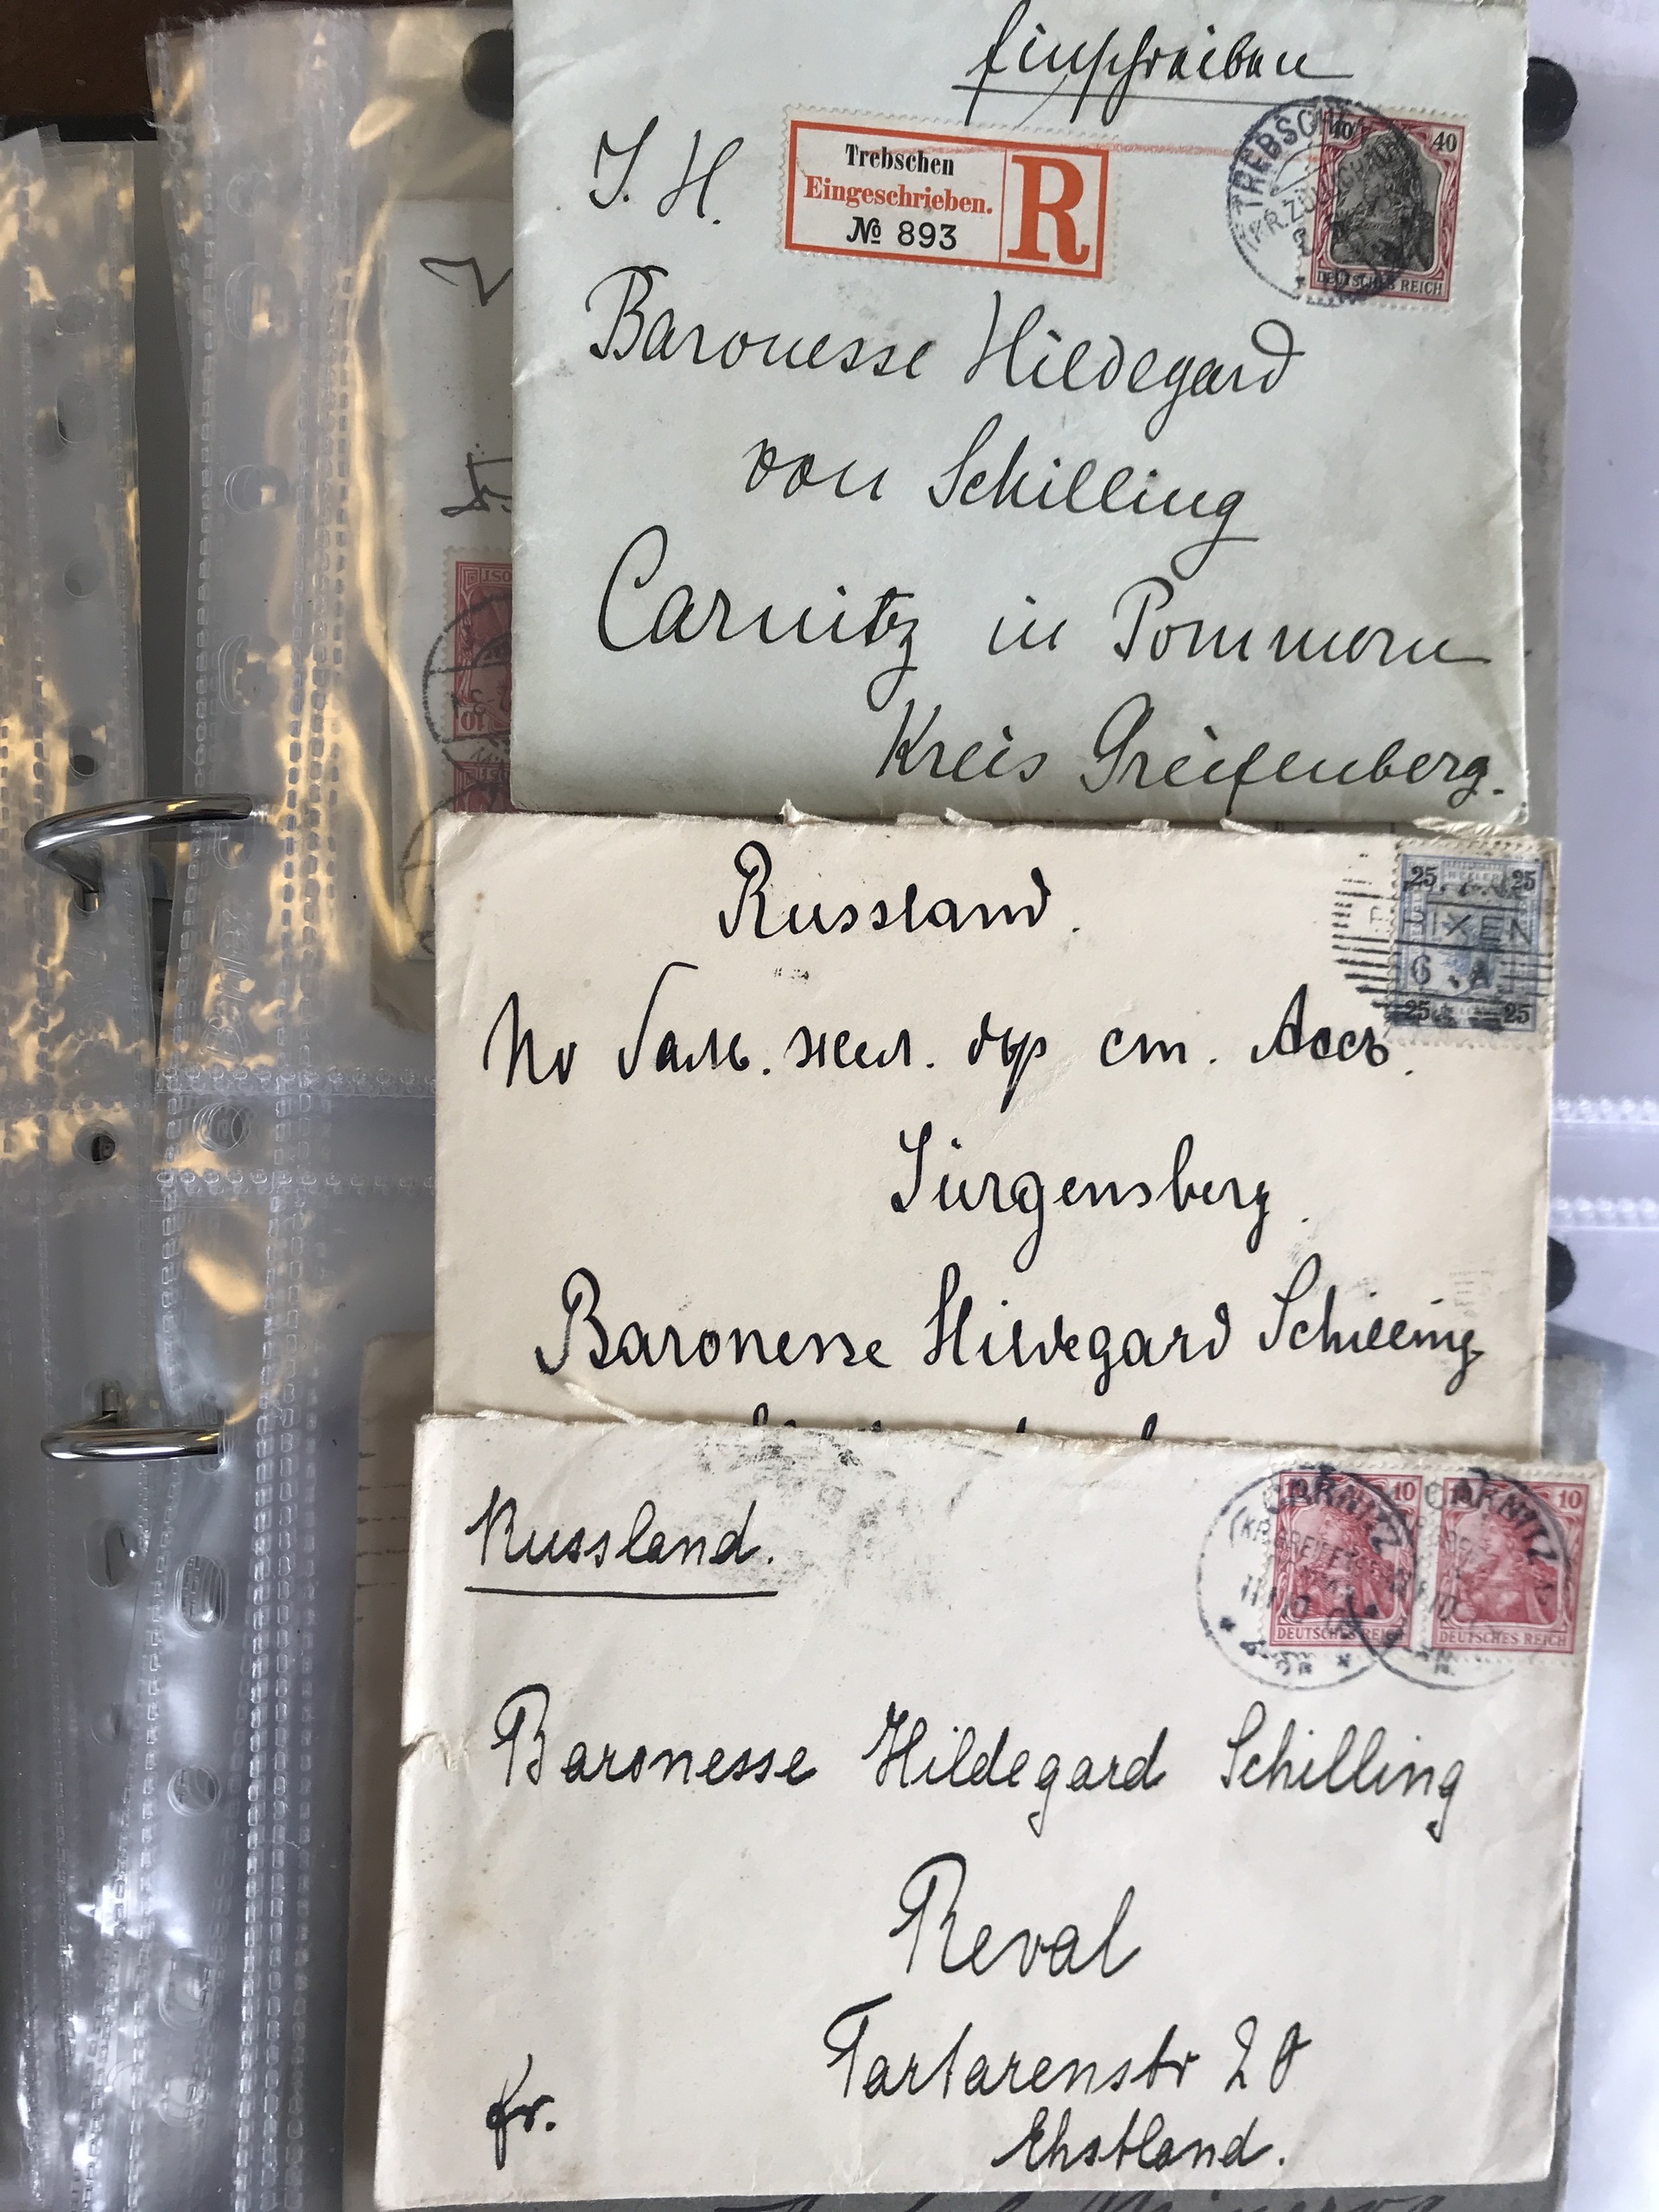 Einschreiben
J. H.
Trebschen
Eingeschrieben.
№ 893
R
TREBSCHEN
40 40
DEUTSCHES REICH
Baronesse Hildegard
von Schilling
Carnitz in Pommern
Kreis Greifenberg.
Russland.
25 25
BRIXEN
6
25 25
По балт. жел. дор ст. Ассъ.
Jürgensberg.
Baronesse Hildegard Schilling
Russland.
CARNITZ
CARNITZ
10
10
DEUTSCHES REICH
DEUTSCHES REICH
Baronesse Hildegard Schilling
Reval
Tartarenstr 20
fr.
Ehstland.